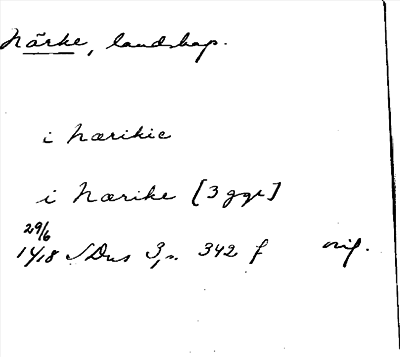 Närke, landskap.
i Nærikie
i Nærike [3 ggr]
29/6
1418 SDns 3, s. 342 f orig.